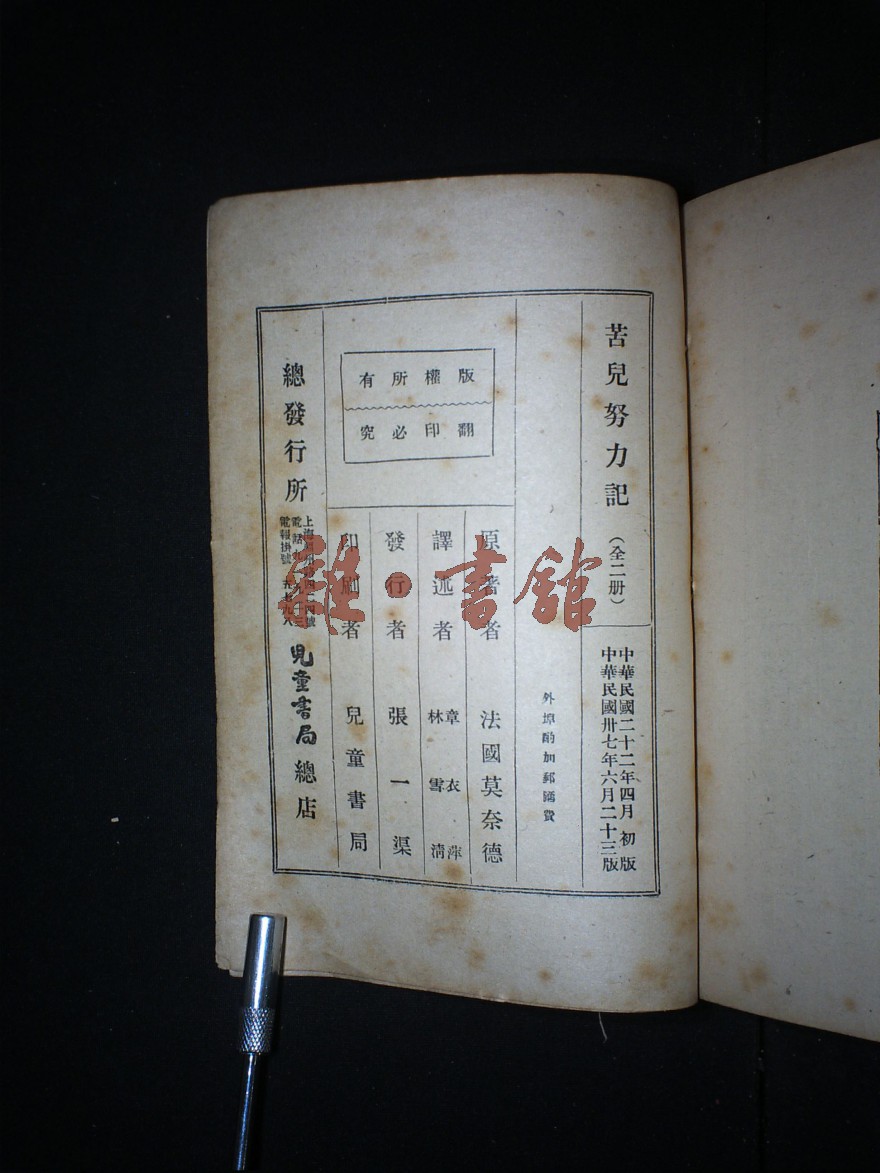 苦兒努力記（全二册）
中華民國二十二年四月初版
中華民國卅七年六月二十三版
外埠酌加郵匯費
版權所有
翻印必究
原著者 法國莫奈德
譯述者 章衣萍
林雪清
發行者 張一渠
印刷者 兒童書局
總發行所
上海
電話
電報掛號
兒童書局總店
雜·書館